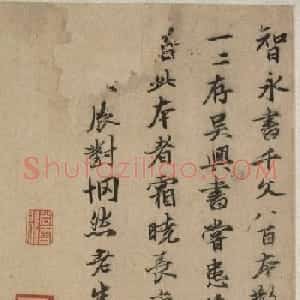 智永書千文八百本散
一二存吳興書當患
此本者霜曉長
展對惘然君生
Shufaziliao.com